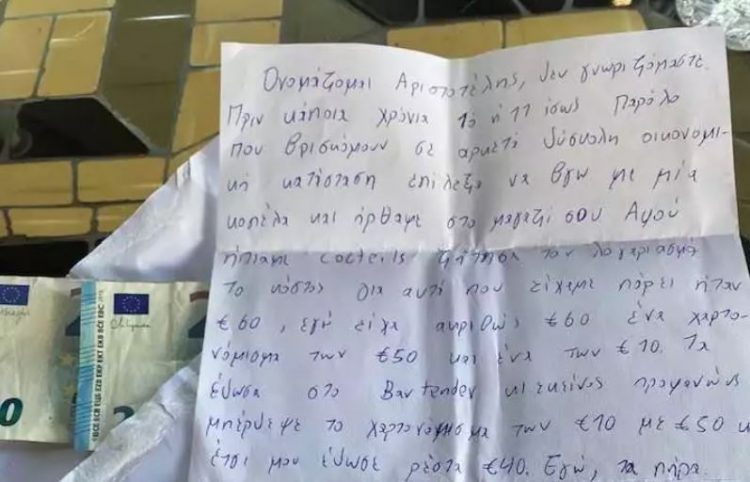 Ονομάζομαι Αριστοτέλης, δεν γνωριζόμαστε.
Πριν κάποια χρόνια 10 ή 11 ίσως Παρόλο
που βρισκόμουν σε αρκετά δύσκολη οικονομι-
κή κατάσταση επίλεξα να βγω με μία
κοπέλα και ήρθαμε στο μαγαζί σου Αφού
ήπιαμε cocteils ζήτησα τον λογαριασμό
το κόστος για αυτά που είχαμε πάρει ήταν
€60, εγώ είχα ακριβώς €60 ένα χαρτο-
νόμισμα των €50 και ένα των €10. Τα
έδωσα στο Bartender κι εκείνος προφανώς
μπέρδεψε το χαρτονόμισμα των €10 με €50 κ
έτσι μου έδωσε ρέστα €40. Εγώ, τα πήρα.
BCE ECB
0
2